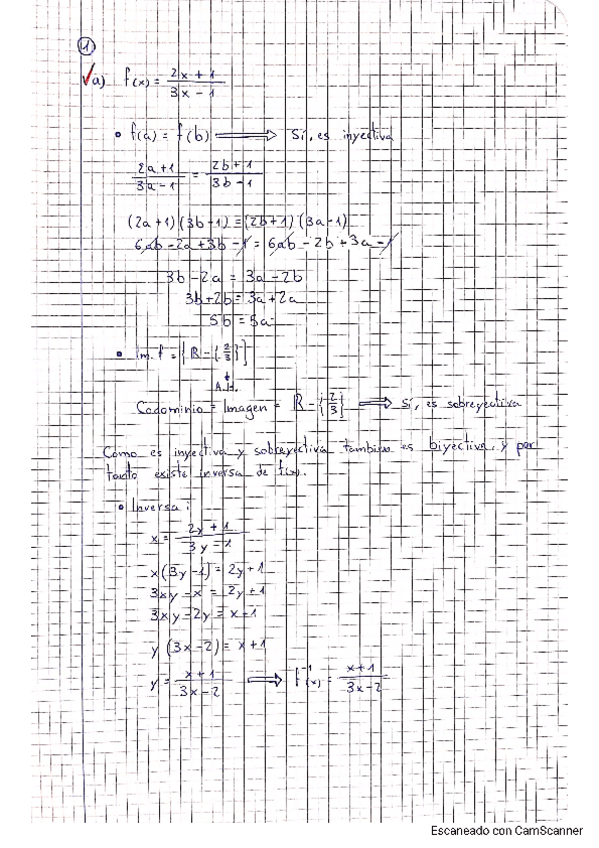 1)
a) f(x) = 2x + 1 / 3x - 1
• f(a) = f(b) ⟹ Sí, es inyectiva
2a + 1 / 3a - 1 = 2b + 1 / 3b - 1
(2a+1)(3b-1) = (2b+1)(3a-1)
6ab - 2a + 3b - 1 = 6ab - 2b + 3a - 1
3b - 2a = 3a - 2b
3b + 2b = 3a + 2a
5b = 5a
• Im. f = {ℝ - {2/3}}
A.H.
Codominio = Imagen = ℝ - {2/3} ⟹ Sí, es sobreyectiva
Como es inyectiva y sobreyectiva tambien es biyectiva, y por
tanto existe inversa de f(x).
• Inversa:
x = 2y + 1 / 3y - 1
x(3y - 1) = 2y + 1
3xy - x = 2y + 1
3xy - 2y = x + 1
y(3x - 2) = x + 1
y = x + 1 / 3x - 2 ⟹ f⁻¹(x) = x + 1 / 3x - 2
Escaneado con CamScanner